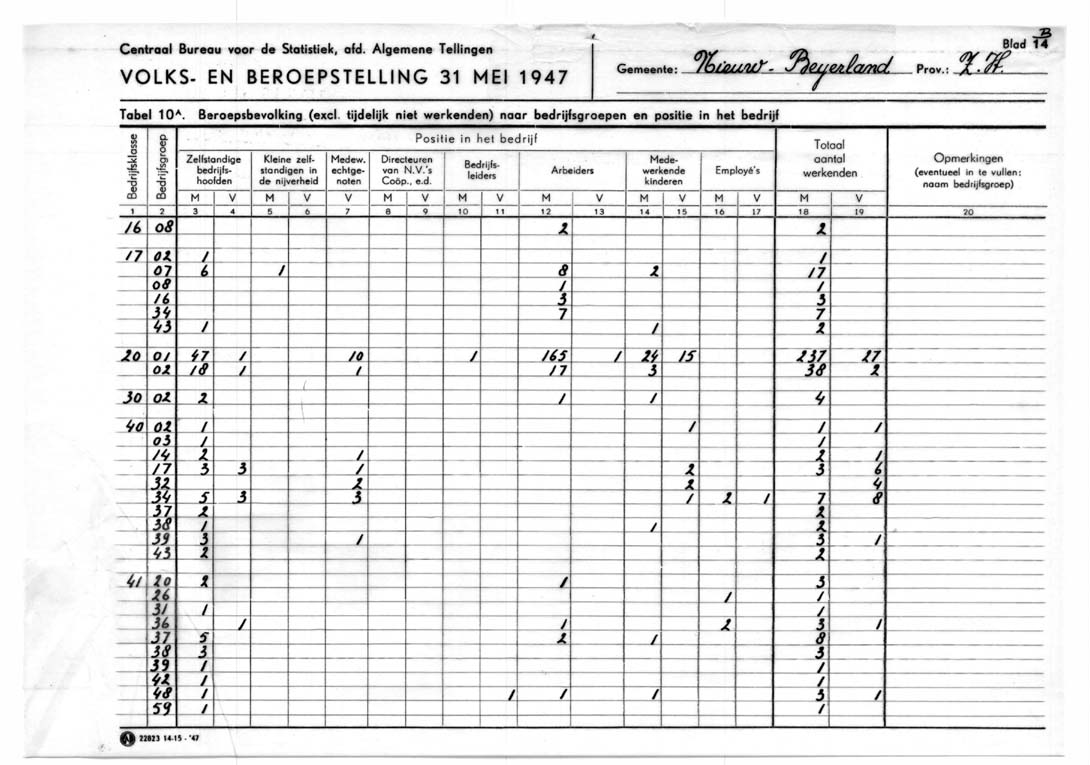 Blad B/14
Centraal Bureau voor de Statistiek, afd. Algemene Tellingen
VOLKS- EN BEROEPSTELLING 31 MEI 1947
Gemeente: Nieuw-Beyerland Prov.: Z.H.
Tabel 10A. Beroepsbevolking (excl. tijdelijk niet werkenden) naar bedrijfsgroepen en positie in het bedrijf
Bedrijfsklasse
Bedrijfsgroep
Positie in het bedrijf
Zelfstandige bedrijfs-hoofden
Kleine zelf-standigen in de nijverheid
Medew. echtge-noten
Directeuren van N.V.'s Coöp., e.d.
Bedrijfs-leiders
Arbeiders
Mede-werkende kinderen
Employé's
Totaal aantal werkenden
Opmerkingen (eventueel in te vullen: naam bedrijfsgroep)
M V M V V M V M V M V M V M V M V
1 2 3 4 5 6 7 8 9 10 11 12 13 14 15 16 17 18 19 20
16 08 2 2
17 02 1 1
07 6 1 8 2 17
08 1 1
16 3 3
34 7 7
43 1 1 2
20 01 47 1 10 1 165 1 24 15 237 27
02 18 1 1 17 3 38 2
30 02 2 1 1 4
40 02 1 1 1 1
03 1 1
14 2 1 2 1
17 3 3 1 2 3 6
32 2 2 4
34 5 3 3 1 2 1 7 8
37 2 2
38 1 1 2
39 3 1 3 1
43 2 2
41 20 2 1 3
26 1 1
31 1 1
36 1 1 2 3 1
37 5 2 1 8
38 3 3
39 1 1
42 1 1
48 1 1 1 1 3 1
59 1 1
22823 14-15 - '47